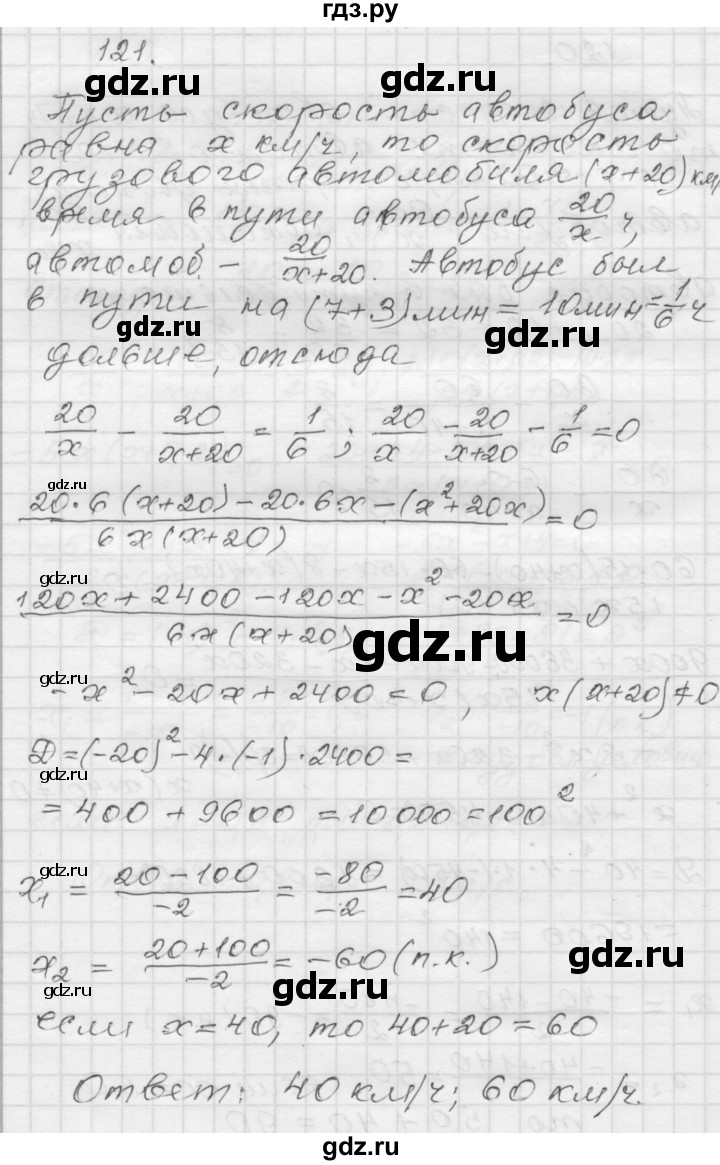 гдз.ру
121.
gdz.ru
Пусть скорость автобуса
равна x км/ч, то скорость
грузового автомобиля (x+20) км/
время в пути автобуса 20/x ч,
gdz.ru gdz.ru
автомоб. – 20/x+20. Автобус был
в пути на (7+3) мин = 10 мин = 1/6 ч
gdz.ru gdz.ru
дольше, отсюда
20/x – 20/x+20 = 1/6 ; 20/x – 20/x+20 – 1/6 = 0
gdz.ru
20·6(x+20) – 20·6x – (x²+20x)/6x(x+20) = 0
gdz.ru
120x + 2400 – 120x – x² – 20x/6x(x+20) = 0
gdz.ru
gdz.ru
– x² – 20x + 2400 = 0, x(x+20)≠0
Д = (–20)² – 4·(–1)·2400 =
= 400 + 9600 = 10000 = 100²
gdz.ru
x₁ = 20 – 100/–2 = –80/–2 = 40
x₂ = 20 + 100/–2 = –60 (п.к.)
gdz.ru gdz.ru
если x = 40, то 40 + 20 = 60
Ответ: 40 км/ч; 60 км/ч.
gdz.ru
gdz.ru
gdz.ru